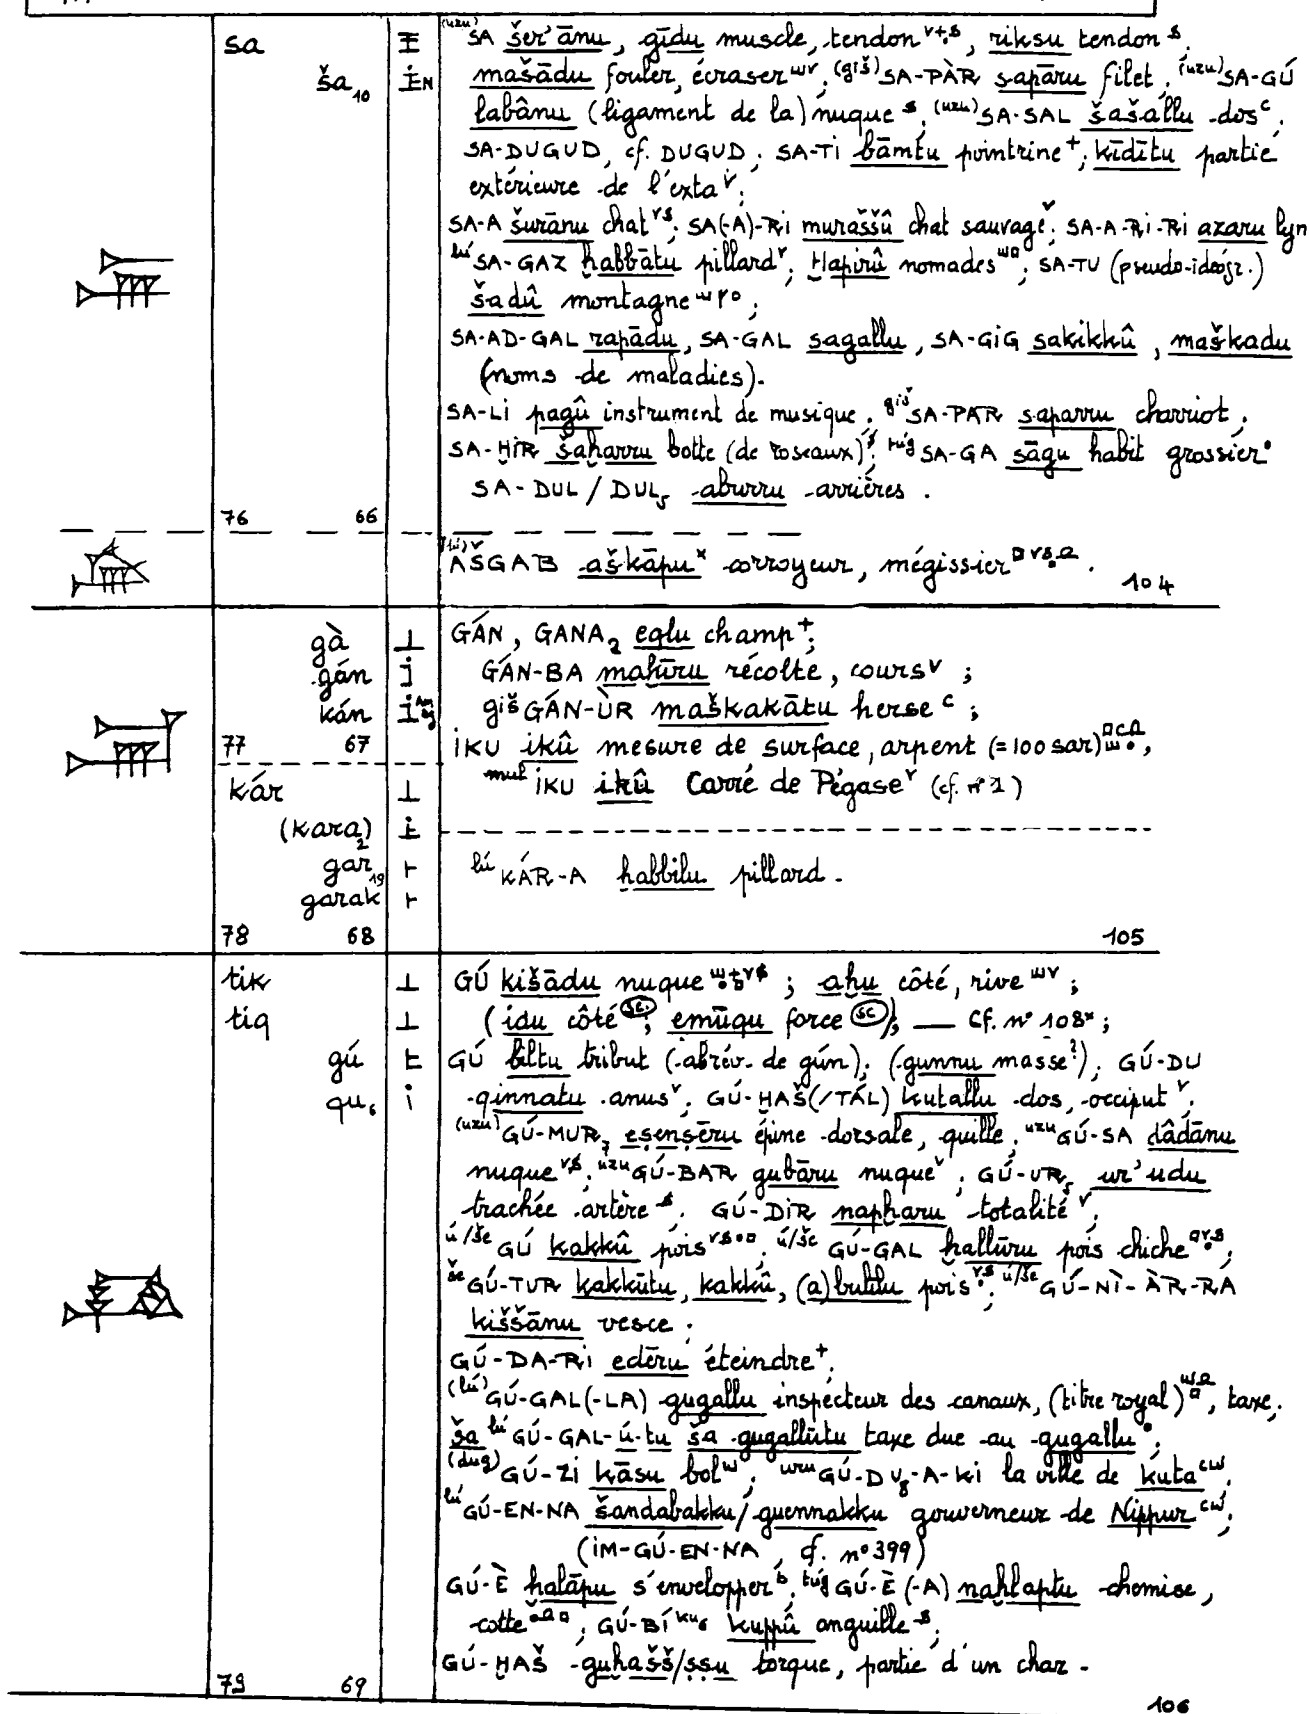 sa
ša₁₀
(uzu)SA šer'ānu, gīdu muscle, tendon, riksu tendon.
mašādu fouler, écraser, (giš)SA-PÀR sapāru filet, (uzu)SA-GÚ
labânu (ligament de la) nuque, (uzu)SA-SAL šašallu dos,
SA-DUGUD, cf. DUGUD; SA-TI bāmtu pointrine⁺, kīdītu partie
extérieure de l'exta ᵛ;
SA-A šurānu chat, SA(-A)-RI muraššû chat sauvage ᵛ, SA-A-RI-RI azaru lyn
lúSA-GAZ ḫabbātu pillard ᵛ, Ḫapirû nomades, SA-TU (pseudo-idéogr.)
šadû montagne;
SA-AD-GAL rapādu, SA-GAL sagallu, SA-GIG sakikkû, maškadu
(noms de maladies).
SA-LI pagû instrument de musique. gišSA-PAR saparru charriot,
SA-ḪIR šaḫarru botte (de roseaux), túgSA-GA sāgu habit grossier
SA-DUL/DUL₅ aburru arrières.
76 66
(lú)AŠGAB aškāpu ˣ corroyeur, mégissier.
104
gà
gán
kán
77 67
GÁN, GANA₂ eqlu champ⁺;
GÁN-BA maḫīru récolte, cours ᵛ;
gišGÁN-ÙR maškakātu herse ᶜ;
IKU ikû mesure de surface, arpent (=100 sar),
mulIKU ikû Carré de Pégase ᵛ (cf. n° 1)
kár
(kara₂)
gar₁₉
garak
lúKÁR-A ḫabbilu pillard.
78 68
105
tik
tiq
gú
qu₆
GÚ kišādu nuque; aḫu côté, rive;
(idu côté (SC); emūqu force (SC)), — Cf. n° 108ˣ;
GÚ biltu tribut (abrév. de gún), (gunnu masse?), GÚ-DU
qinnatu anus ᵛ, GÚ-ḪAŠ(/TÁL) kutallu dos, occiput ᵛ,
(uzu)GÚ-MUR₇ eṣenṣēru épine dorsale, quille, uzuGÚ-SA dâdānu
nuque, uzuGÚ-BAR gubāru nuque ᵛ, GÚ-UR₅ ur'udu
trachée artère, GÚ-DIR napḫaru totalité ᵛ,
ú/šeGÚ kakkû pois, ú/šeGÚ-GAL ḫallūru pois chiche,
šeGÚ-TUR kakkūtu, kakkû, (a) pois, ú/šeGÚ-NÌ-ÀR-RA
kiššānu vesce.
GÚ-DA-RI edēru éteindre⁺,
(lú)GÚ-GAL(-LA) gugallu inspecteur des canaux, (titre royal), taxe,
ša lúGÚ-GAL-ú-tu ša gugallūtu taxe due au gugallu,
(dug)GÚ-ZI kāsu bol ʷ, uruGÚ-DU₈-A-KI la ville de kuta,
lúGÚ-EN-NA šandabakku/guennakku gouverneur de Nippur,
(IM-GÚ-EN-NA, cf. n° 399)
GÚ-È ḫalāpu s'envelopper ᵇ, túgGÚ-È(-A) naḫlaptu chemise,
cotte, GÚ-BÍ ku₆ kuppû anguille,
GÚ-ḪAŠ guḫašš/ṣṣu torque, partie d'un char.
79 69
106